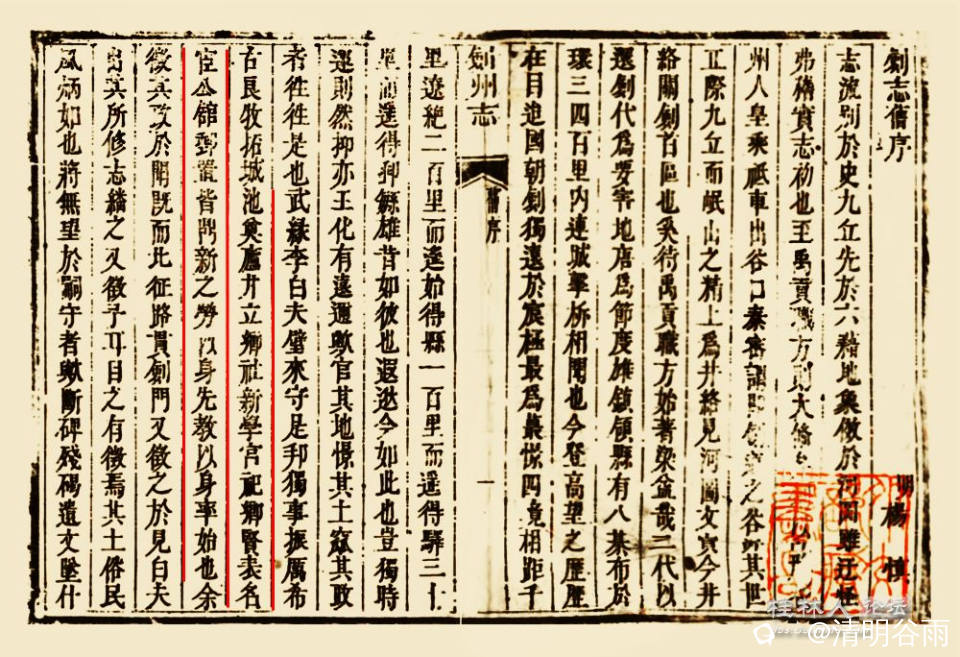 劍志舊序 明楊慎
志流別於史九丘先於六籍地象倣於河圖雖迂怪
弗稽實志初也至禹貢職方則大備
州人皇乘祇車出谷口秦宓謂之谷其世
正際九丘而岷山之精上爲井絡見河圖文實今井
絡關劍首區也爰待禹貢職方始著梁益哉二代以
還劍代爲要害地唐爲節度雄鎮領縣有八棊布於
環三四百里内連城擊柝相聞也今登高望之歷歷
在目迨國朝劍獨遠於宸極最爲叢憬四境相距千
劍州志 舊序 一
里遼絕二百里而遙始得縣一百里而遙得驛三十
里而遙得郵繇雄昔如彼也遐逖今如此也豈獨時
運則然抑亦王化有遠邇歟官其地憬其土窳其政
者往往是也武緣李白夫璧來守是邦獨事振厲布
古良牧拓城池奠廬井立鄉社新學宮祀鄉賢表名
宦公館郵置皆鼎新之勞以身先教以身率始也余
徵其政於聞既而北征路貫劍門又徵之於見白夫
出其所修志續之又徵予耳目之有徵焉其土俗民
風炳如也將無望於嗣守者歟斷碑殘碣遺文墜什
桂林人论坛
@清明谷雨